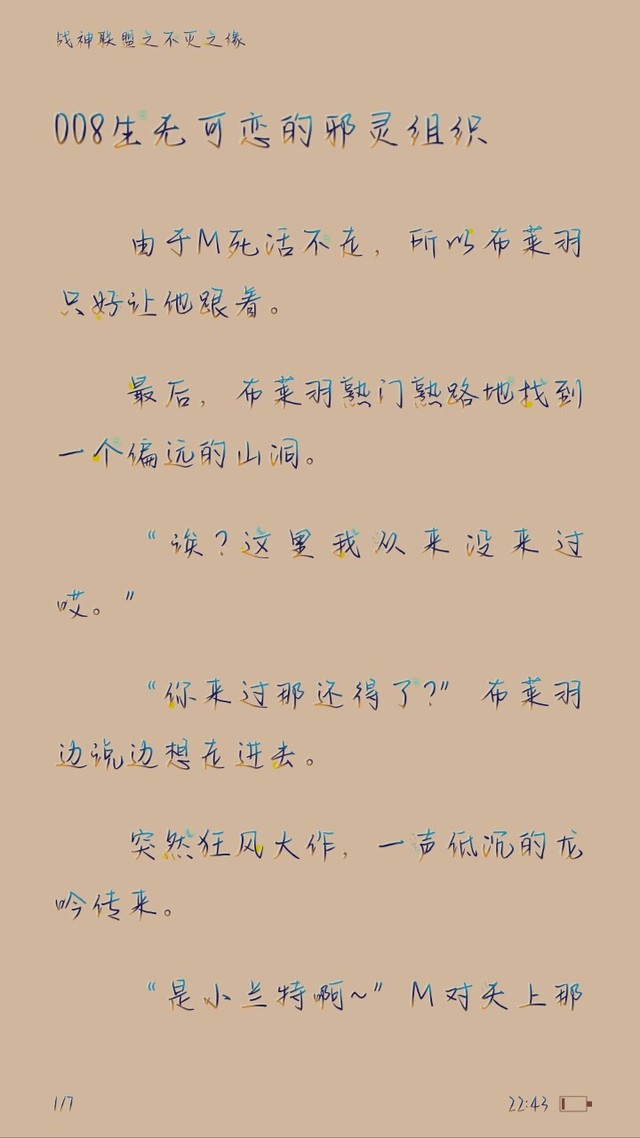 战神联盟之不灭之缘
008生无可恋的邪灵组织
由于M死活不走，所以布莱羽
只好让他跟着。
最后，布莱羽熟门熟路地找到
一个偏远的山洞。
“诶？这里我从来没来过
哎。”
“你来过那还得了？” 布莱羽
边说边想走进去。
突然狂风大作，一声低沉的龙
吟传来。
“是小兰特啊~” M对天上那
1/7
22:43